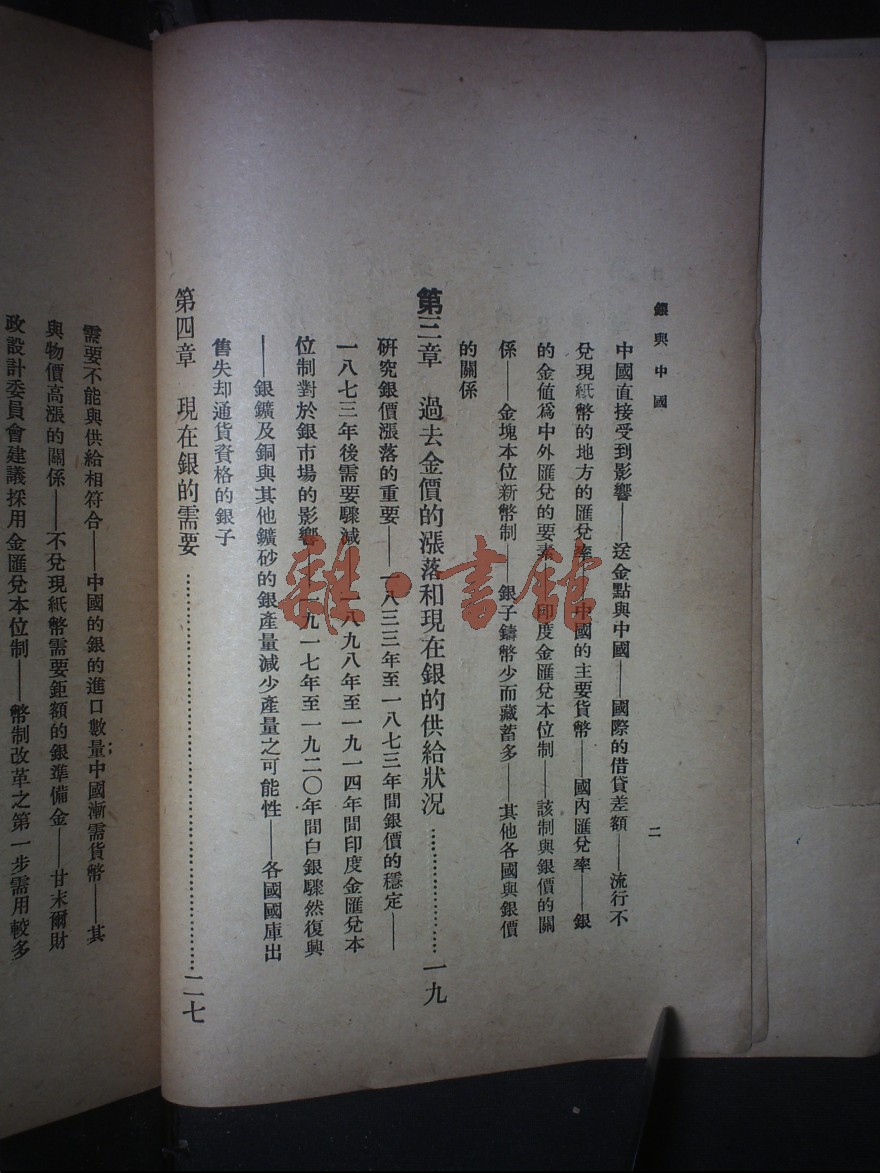 銀與中國
二
中國直接受到影響——送金點與中國——國際的借貸差額——流行不
兌現紙幣的地方的匯兌率——中國的主要貨幣——國內匯兌率——銀
的金值爲中外匯兌的要素——印度金匯兌本位制——該制與銀價的關
係——金塊本位新幣制——銀子鑄幣少而藏蓄多——其他各國與銀價
的關係
第三章 過去金價的漲落和現在銀的供給狀況……………………一九
硏究銀價漲落的重要——一八三三年至一八七三年間銀價的穩定——
一八七三年後需要驟減——一八九八年至一九一四年間印度金匯兌本
位制對於銀市場的影響——一九一七年至一九二〇年間白銀驟然復興
——銀鑛及銅與其他鑛砂的銀產量減少產量之可能性——各國國庫出
售失却通貨資格的銀子
第四章 現在銀的需要……………………………………………………二七
需要不能與供給相符合——中國的銀的進口數量中國漸需貨幣——其
與物價高漲的關係——不兌現紙幣需要鉅額的銀準備金——甘末爾財
政設計委員會建議採用金匯兌本位制——幣制改革之第一步需用較多
雜·書館